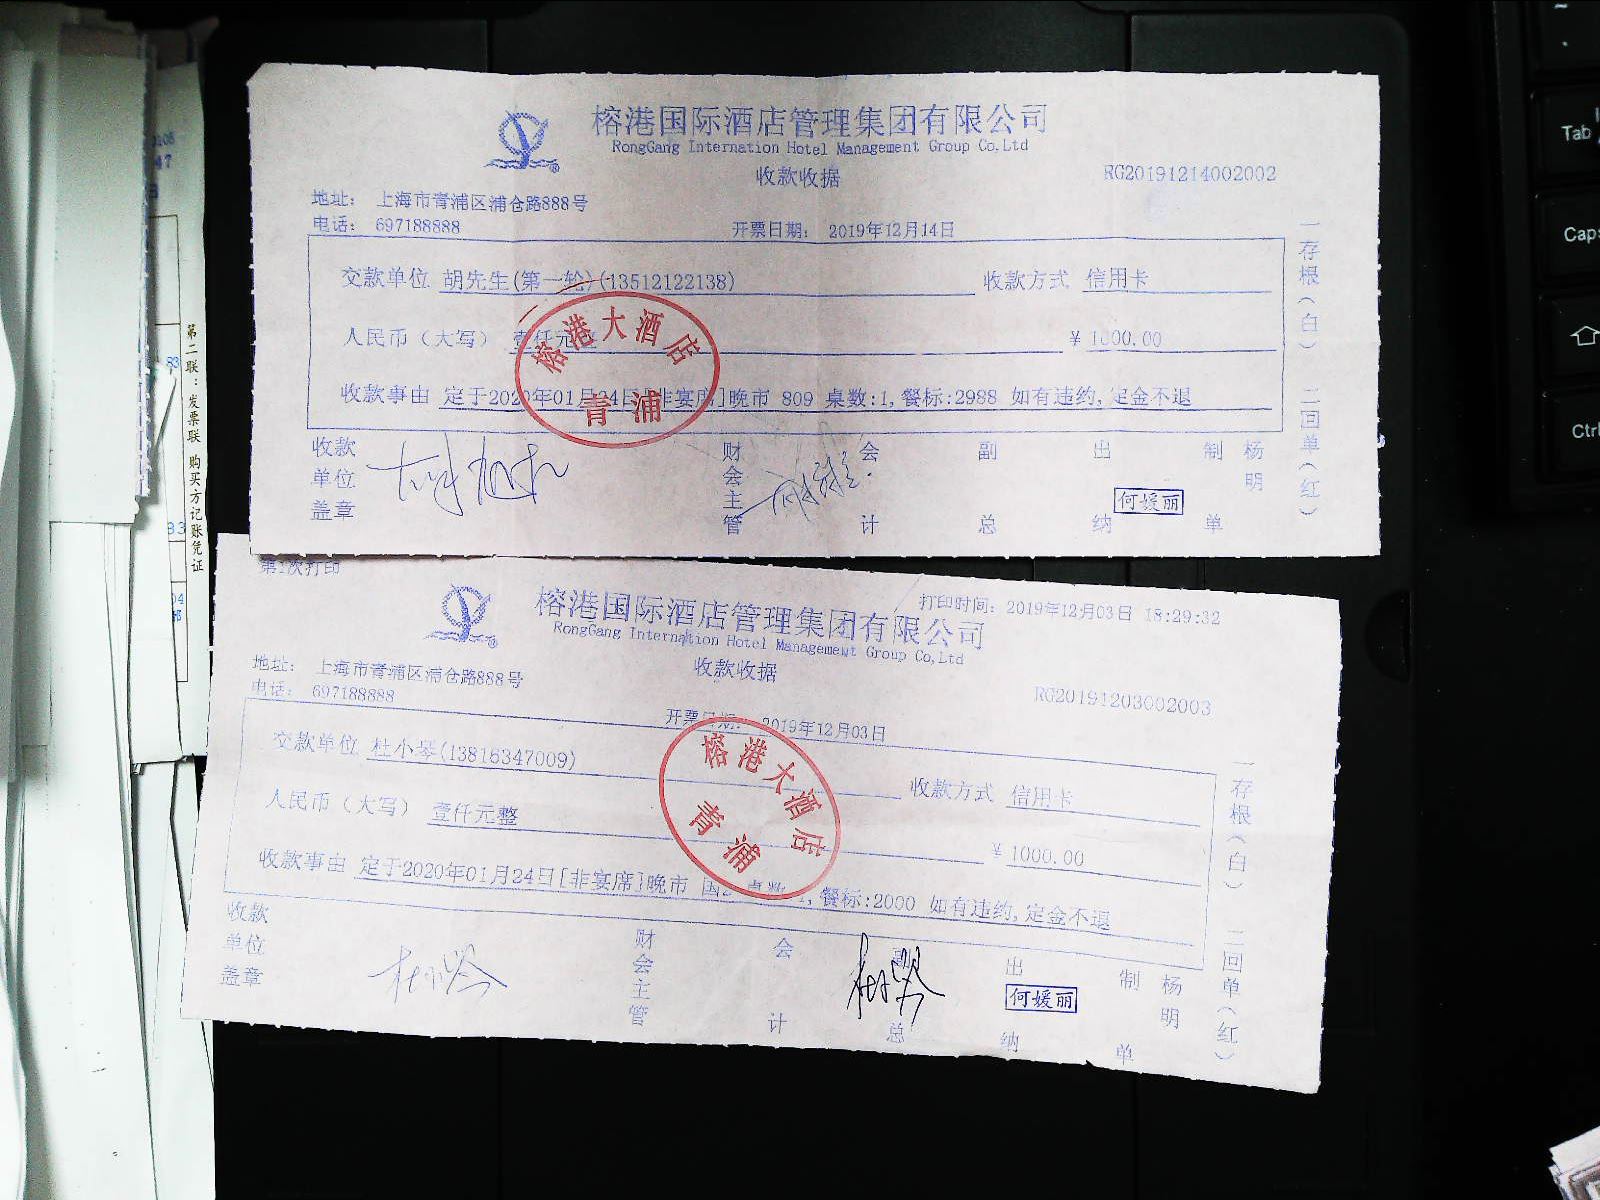 榕港国际酒店管理集团有限公司
RongGang Internation Hotel Management Group Co,Ltd
收款收据
RG20191214002002
地址: 上海市青浦区浦仓路888号
电话: 697188888
开票日期: 2019年12月14日
交款单位 胡先生(第一轮)(13512122138) 收款方式 信用卡
人民币（大写） 壹仟元整 ¥ 1000.00
收款事由 定于2020年01月24日[非宴席]晚市 809 桌数:1,餐标:2988 如有违约,定金不退
榕港大酒店
青浦
收款单位盖章 财会主管 会计 副总 出纳 何媛丽 制单 杨明
一存根(白) 二回单(红)
第1次打印
打印时间: 2019年12月03日 18:29:32
榕港国际酒店管理集团有限公司
RongGang Internation Hotel Management Group Co,Ltd
收款收据
RG20191203002003
地址: 上海市青浦区浦仓路888号
电话: 697188888
开票日期: 2019年12月03日
交款单位 杜小琴(13816347009) 收款方式 信用卡
人民币（大写） 壹仟元整 ¥ 1000.00
收款事由 定于2020年01月24日[非宴席]晚市 桌数:1,餐标:2000 如有违约,定金不退
榕港大酒店
青浦
收款单位盖章 财会主管 会计 副总 出纳 何媛丽 制单 杨明
一存根(白) 二回单(红)
第二联:发票联 购买方记账凭证
Tab
Caps
Ctrl